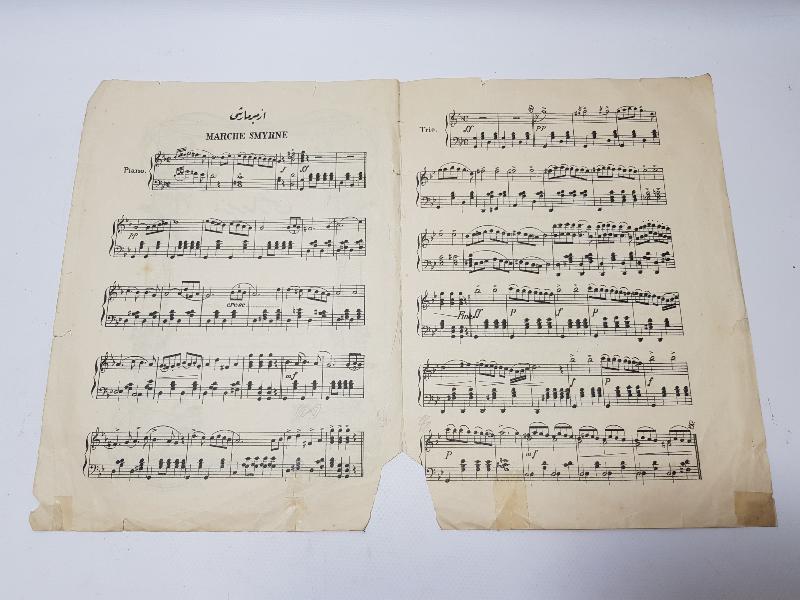 ازمير مارشى
MARCHE SMYRNE
Piano.
f
ff
pp
cresc
mf
Trio.
ff
pp
Fine
ff
p
f
p
f
p
f
p
mf